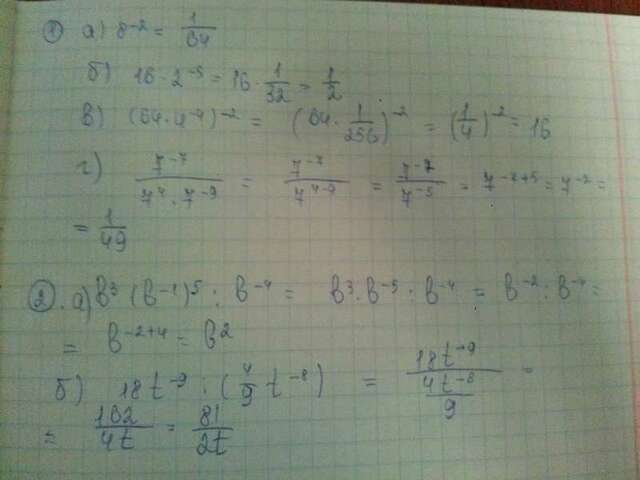 ① а) 8⁻² = 1/64
б) 16 · 2⁻⁵ = 16 · 1/32 = 1/2
в) (64 · 4⁻⁴)⁻² = (64 · 1/256)⁻² = (1/4)⁻² = 16
г) 7⁻⁷/(7⁴ · 7⁻⁹) = 7⁻⁷/7⁴⁻⁹ = 7⁻⁷/7⁻⁵ = 7⁻⁷⁺⁵ = 7⁻² =
= 1/49
②. а) в³ (в⁻¹)⁵ : в⁻⁴ = в³ · в⁻⁵ : в⁻⁴ = в⁻² : в⁻⁴ =
= в⁻²⁺⁴ = в²
б) 18t⁻⁹ : (4/9 t⁻⁸) = 18t⁻⁹/(4t⁻⁸/9) =
= 162/4t = 81/2t